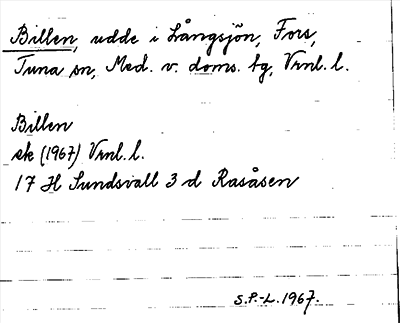 Billen, udde i Långsjön, Fors,
Tuna sn, Med. v. doms. tg, Vrnl. l.
Billen
ek (1967) Vrnl. l.
17 H Sundsvall 3 d Rasåsen
S.P.-L. 1967.